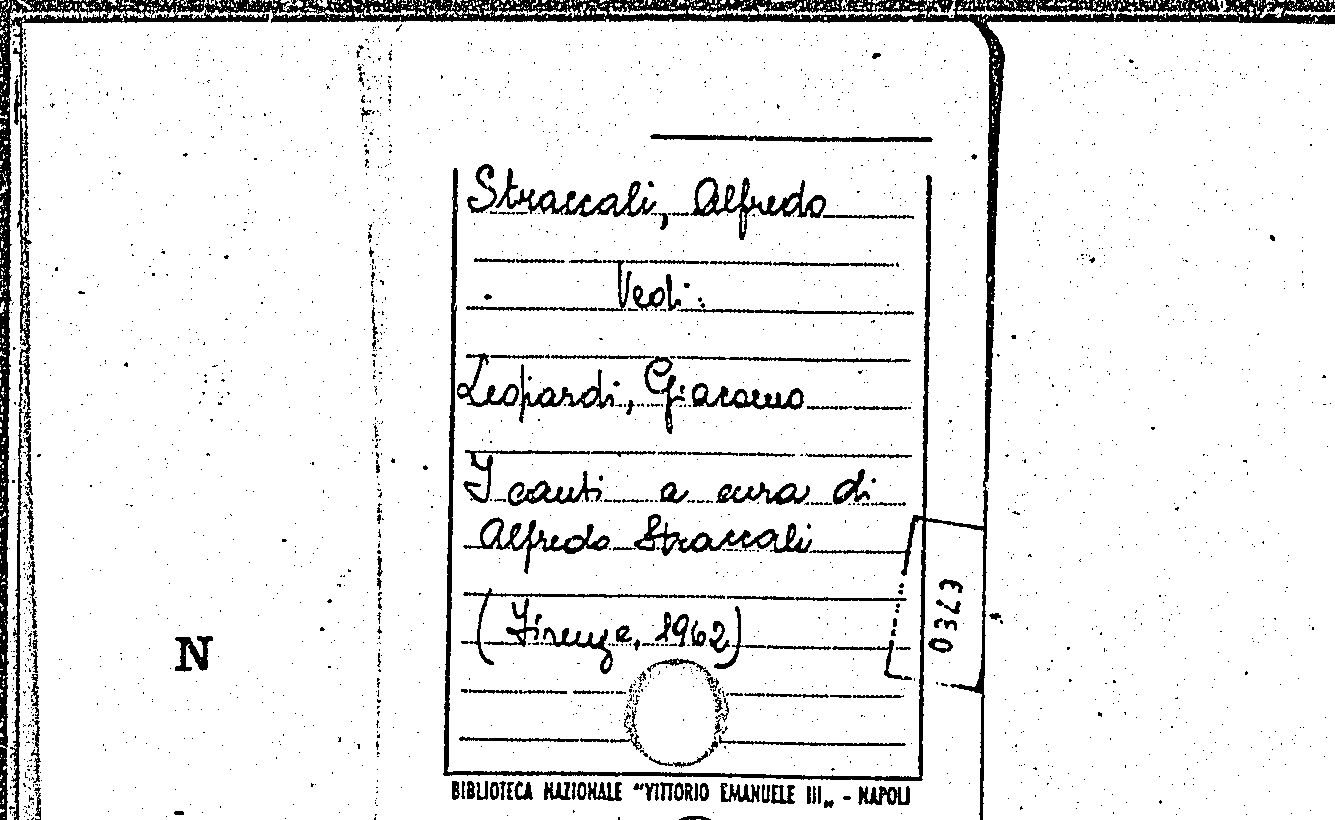 Straccali, Alfredo
Vedi:
Leopardi, Giacomo
I canti a cura di
Alfredo Straccali
(Firenze, 1962)
N
BIBLIOTECA NAZIONALE "VITTORIO EMANUELE III„ - NAPOLI